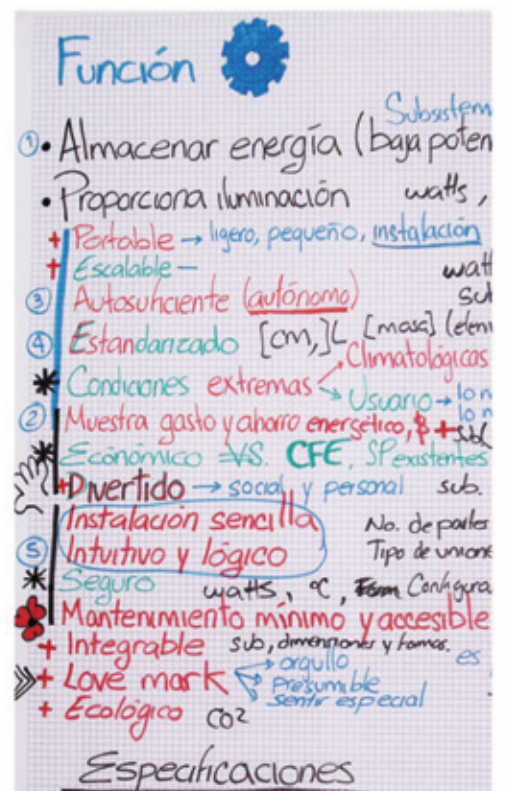 Función
Subsistem
① • Almacenar energía (baja poten
• Proporciona iluminación watts,
+ Portable → ligero, pequeño, instalación
+ Escalable — watt
③ Autosuficiente (autónomo) sub
④ Estandarizado [cm,]L [masa] (elem
Climatológicas
* Condiciones extremas Usuario → lo n
lo n
② Muestra gasto y ahorro energético, $ + sub(
* Económico = VS. CFE, SP existentes
+ Divertido → social y personal sub.
Instalación sencilla No. de partes
⑤ Intuitivo y lógico Tipo de unione
* Seguro watts, °C, Configura
Mantenimiento mínimo y accesible
+ Integrable sub, dimensiones y formas.
→ orgullo es
+ Love mark → presumible
sentir especial
+ Ecológico CO2
Especificaciones